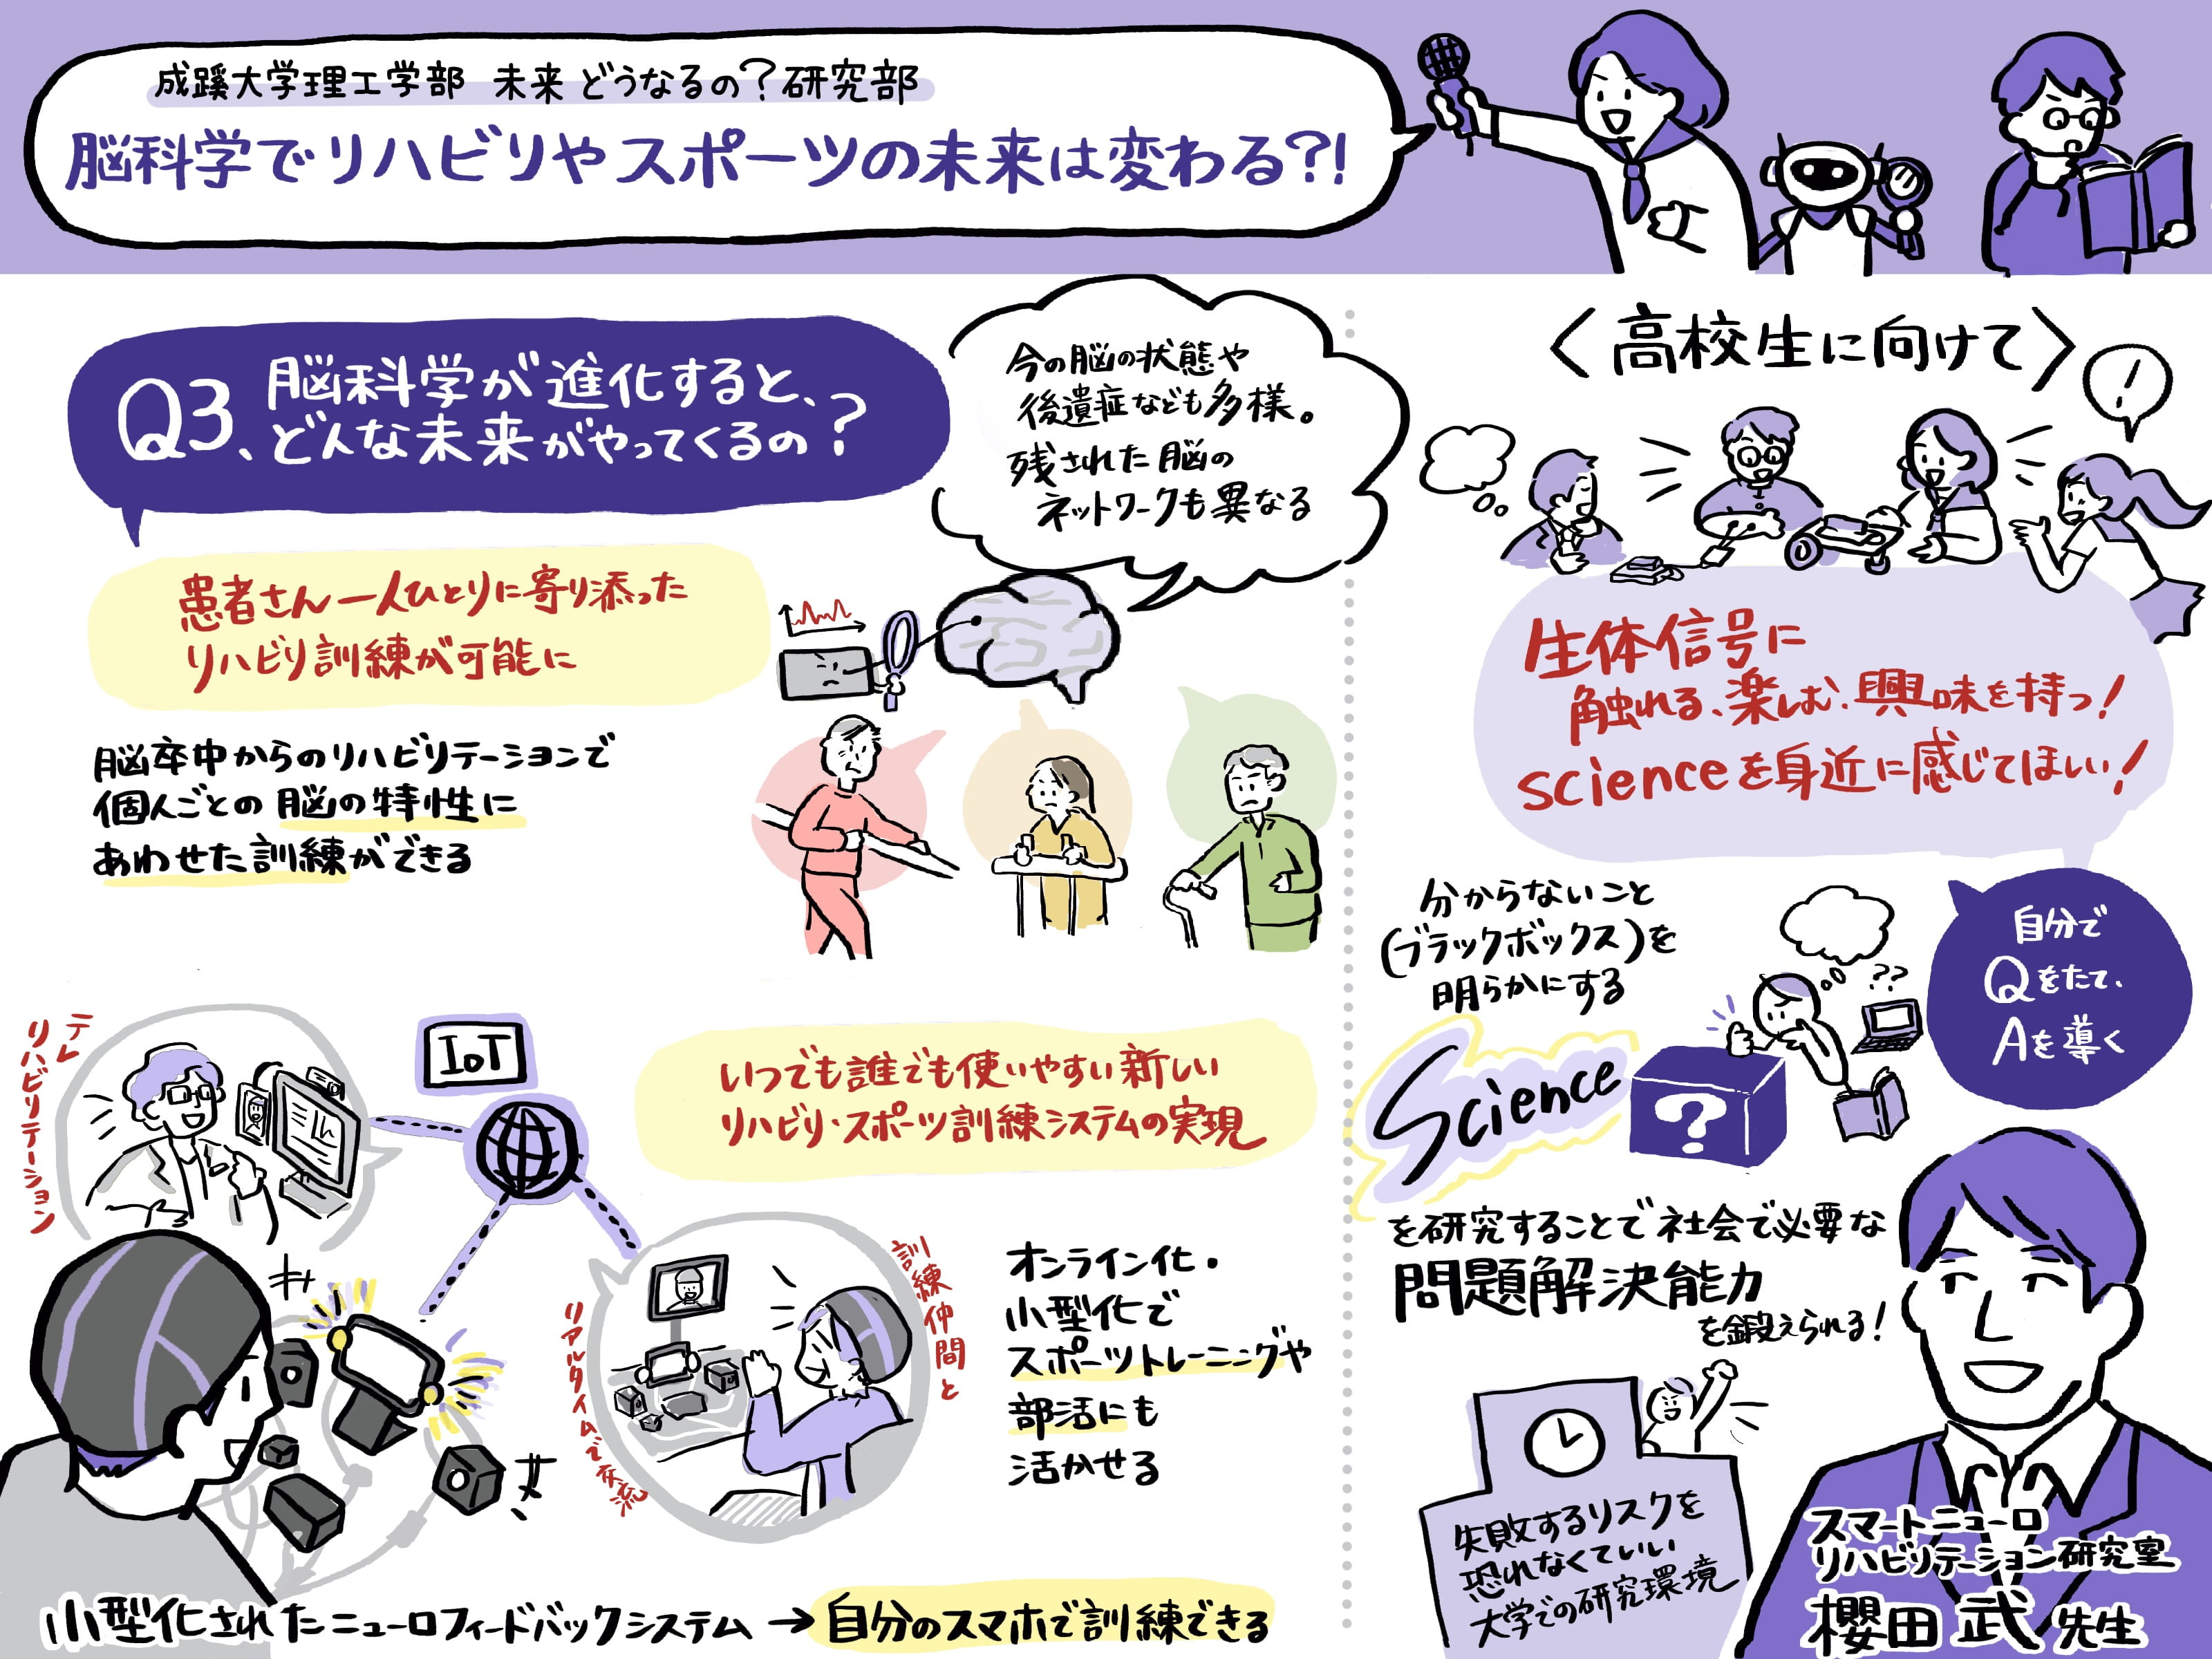 成蹊大学理工学部 未来どうなるの?研究部
脳科学でリハビリやスポーツの未来は変わる?!
Q3、脳科学が進化すると、
どんな未来がやってくるの?
今の脳の状態や
後遺症なども多様。
残された脳の
ネットワークも異なる
患者さん一人ひとりに寄り添った
リハビリ訓練が可能に
脳卒中からのリハビリテーションで
個人ごとの脳の特性に
あわせた訓練ができる
テレ
リハビリテーション
IoT
いつでも誰でも使いやすい新しい
リハビリ・スポーツ訓練システムの実現
訓練仲間と
リアルタイムで交流
オンライン化・
小型化で
スポーツトレーニングや
部活にも
活かせる
小型化されたニューロフィードバックシステム→自分のスマホで訓練できる
〈高校生に向けて〉
!
生体信号に
触れる、楽しむ、興味を持つ!
scienceを身近に感じてほしい!
自分で
Qをたて、
Aを導く
分からないこと
(ブラックボックス)を
明らかにする
??
?
Science
を研究することで社会で必要な
問題解決能力
を鍛えられる!
失敗するリスクを
恐れなくていい
大学での研究環境
スマートニューロ
リハビリテーション研究室
櫻田 武 先生